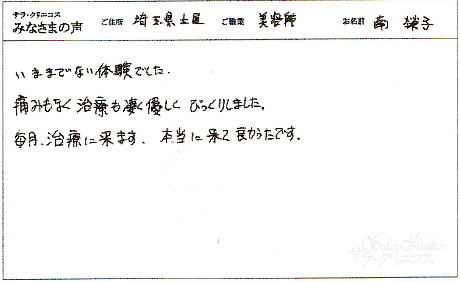 サラ・クリニコス
みなさまの声 ご住所 埼玉県 ご職業 美容師 お名前 南 子
いままでない体験でした.
痛みもなく治療も凄く優しく びっくりしました。
毎月、治療に来ます、本当に来て良かったです.
サラ・クリニコス